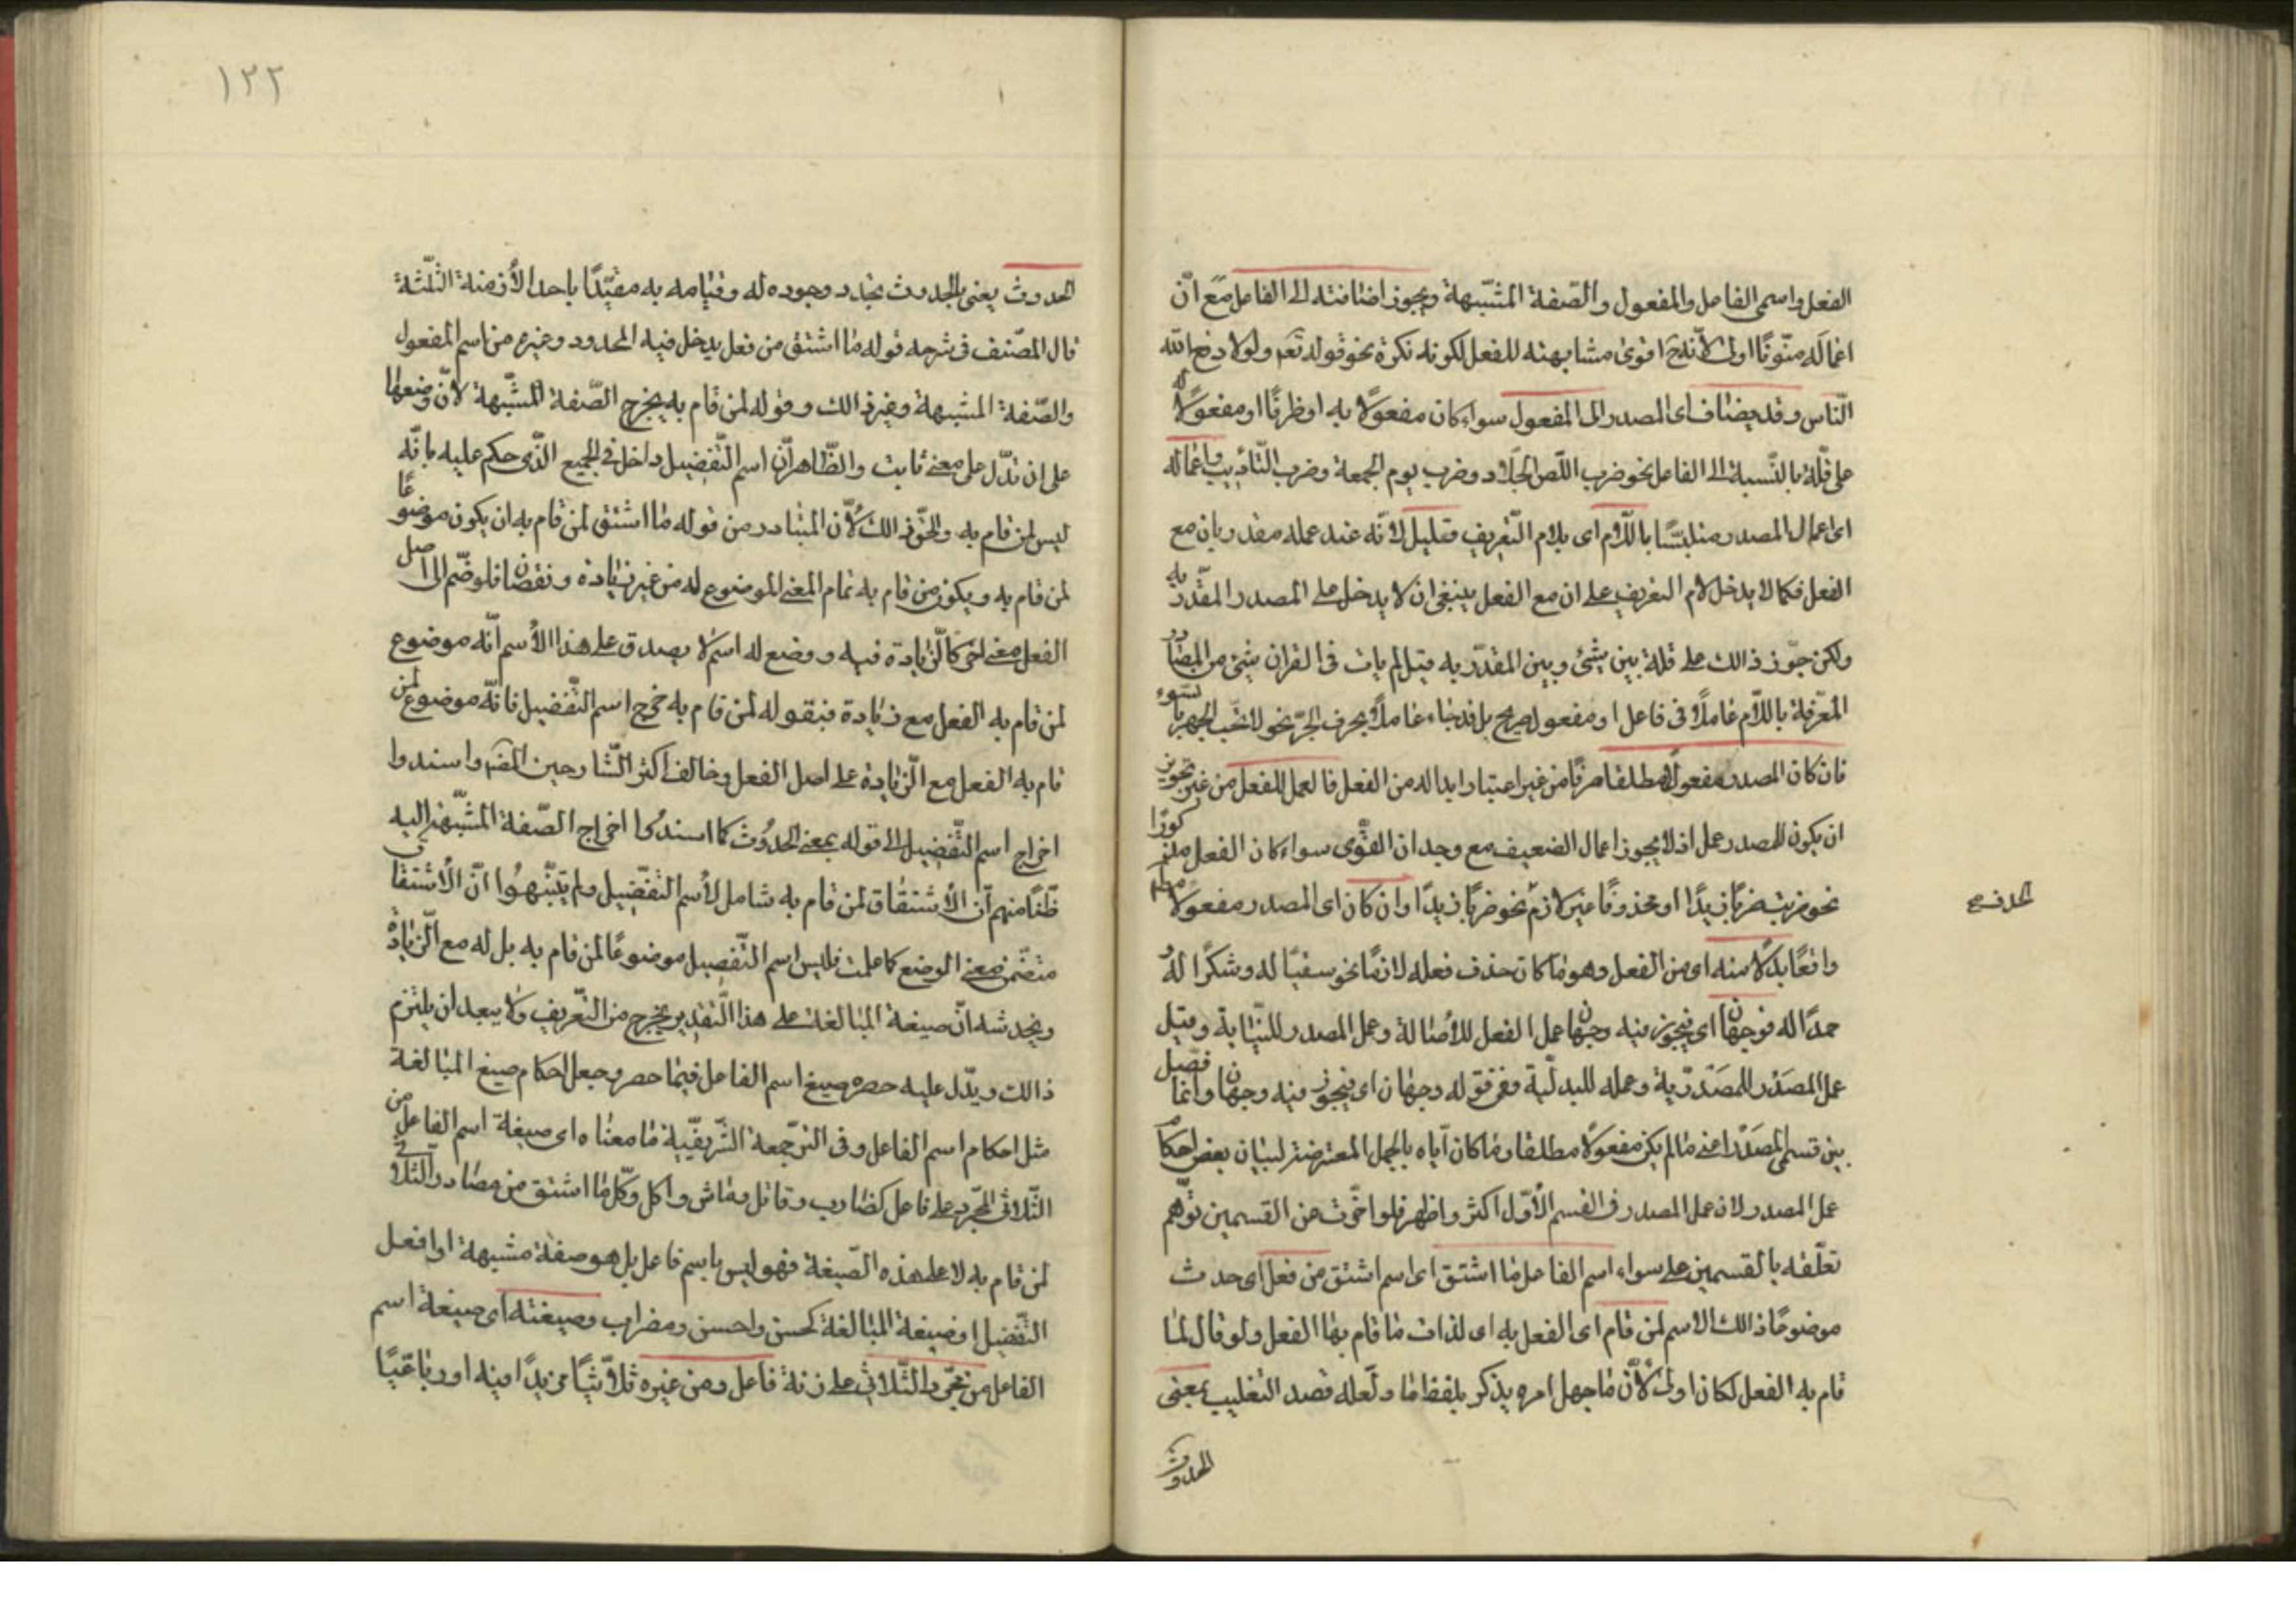 الفعل واسمى الفاعل والمفعول والصّفة المشبّهة ويجوز اضافته الى الفاعل مع انّ
اعماله منّونًا اولى لأنّه ح اقوى مشابهته للفعل لكونه نكرة نحو قوله تعم ولولا دفع الله
النّاس وقد يضاف اى المصدر الى المفعول سواء كان مفعولًا به او ظرفًا او مفعولًا له
على قلّة بالنّسبة الى الفاعل نحو ضرب اللّص الجلّاد وضرب يوم الجمعة وضرب التّأديب واعماله
اى اعمال المصدر متلبسًا باللّام اى بلام التّعريف قليل لأنّه عند عمله مقدر بان مع
الفعل فكما لا يدخل لام التعريف على ان مع الفعل ينبغى ان لا يدخل على المصدر المقدّر به
ولكن جوّز ذالك على قلة بين شئ وبين المقدّر به قيل لم يات فى القران شئ من المصادر
المعرّفة باللّام عاملًا فى فاعل او مفعول صريح بل قد جاء عاملًا بحرف الجرّ نحو لا يحّب الجهر بالسّوء
فان كان المصدر مفعولًا مطلقا صرفًا من غير اعتبار ابداله من الفعل فالعمل للفعل من غير تجويز
ان يكون للمصدر عمل اذ لا يجوز اعمال الضعيف مع وجدان القوّى سواء كان الفعل مذكورًا
نحو ضربت ضربًا زيدًا او محذوفًا غير لازم نحو ضربًا زيدًا وان كان اى المصدر مفعولًا مطلقا
واقعًا بدلًا منه اى من الفعل وهو ما كان حذف فعله لازمًا نحو سقيًا له وشكرًا له و
حمدًا له فوجهان اى فيجوز فيه وجهان عمل الفعل للأصالة وعمل المصدر للنّيابة وقيل
عمل المصدر للمصدّرية وعمله للبدلّية ففى قوله وجهان اى فيجوز فيه وجهان وانما فصّل
بين قسمى المصدر اعنى ما لم يكن مفعولًا مطلقا وما كان آياه بالجمل المعترضة لبيان بعض احكام
عمل المصدر لان عمل المصدر فى القسم الأوّل اكثر واظهر فلو اخّرت عن القسمين توّهم
تعلّقه بالقسمين على سواء اسم الفاعل ما اشتق اى اسم اشتق من فعل اى حدث
موضوعًا ذالك الاسم لمن قام اى الفعل به اى لذات ما قام بها الفعل ولو قال لما
قام به الفعل لكان اولى لأنّ ما جهل امره يذكر بلفظ ما ولعّله قصد التغليب بمعنى
الحدوث
الحدوث يعنى بالحدوث تجدد وجوده له وقيامه به مقيّدًا باحد الأزمنة الثّلثة
قال المصّنف فى شرحه قوله ما اشتق من فعل يدخل فيه المحدود وغيره من اسم المفعول
والصّفة المشبهة وغير ذالك وقوله لمن قام به يخرج الصّفة المشّبهة لأنّ وضعها
على ان تدّل على معنى ثابت والظّاهر انّ اسم التّفضيل داخل فى الجميع الّذى حكم عليه بانّه
ليس لمن قام به والحقّ ذالك لأنّ المتبادر من قوله ما اشتق لمن قام به ان يكون موضوعًا
لمن قام به ويكون من قام به تمام المعنى الموضوع له من غير زيادة ونقصان فلو ضّم الى اصل
الفعل معنى اخر كالّزيادة فيه ووضع له اسم لا يصدق على هذا الأسم انّه موضوع
لمن قام به الفعل مع زيادة فبقوله لمن قام به خرج اسم التّفضيل فانّه موضوع لمن
قام به الفعل مع الّزيادة على اصل الفعل وخالف اكثر الشّارحين المصّ واسندوا
اخراج اسم التّفضيل الى قوله بمعنى الحدُوث كما اسندُوا اخراج الصّفة المشبّهة اليه
ظّنًا منهم انّ الأشتقاق لمن قام به شامل لأسم التّفضيل ولم يتنبّهوُا انّ الأشتقاق
متضّمن معنى الوضع كما علمت فليس اسم التّفضيل موضوعًا لمن قام به بل له مع الّزيادة
ويخدشه انّ صيغة المبالغة على هذا الّتقدير يخرج من التّعريف ولا يبعد ان يلتزم
ذالك ويدّل عليه حصره صيغ اسم الفاعل فيما حصر وجعل احكام صيغ المبالغة
مثل احكام اسم الفاعل وفى الترجّمة الشّريفّية ما معناه اى صيغة اسم الفاعل من
الثّلاثى المجّرد على فاعل كضارب وقاتل وماش واكل وكلّ ما اشتق من مصادر الثلاثى
لمن قام به لا على هذه الصّيغة فهو ليس باسم فاعل بل هو صفة مشبهة او افعل
التّفضيل او صيغة المبالغة كحسن واحسن ومضراب وصيغته اى صيغة اسم
الفاعل من مجّرد الثّلاثى على زنة فاعل ومن غيره ثلاثّيًا مزيدًا فيه او رباعّيًا
١٢٢